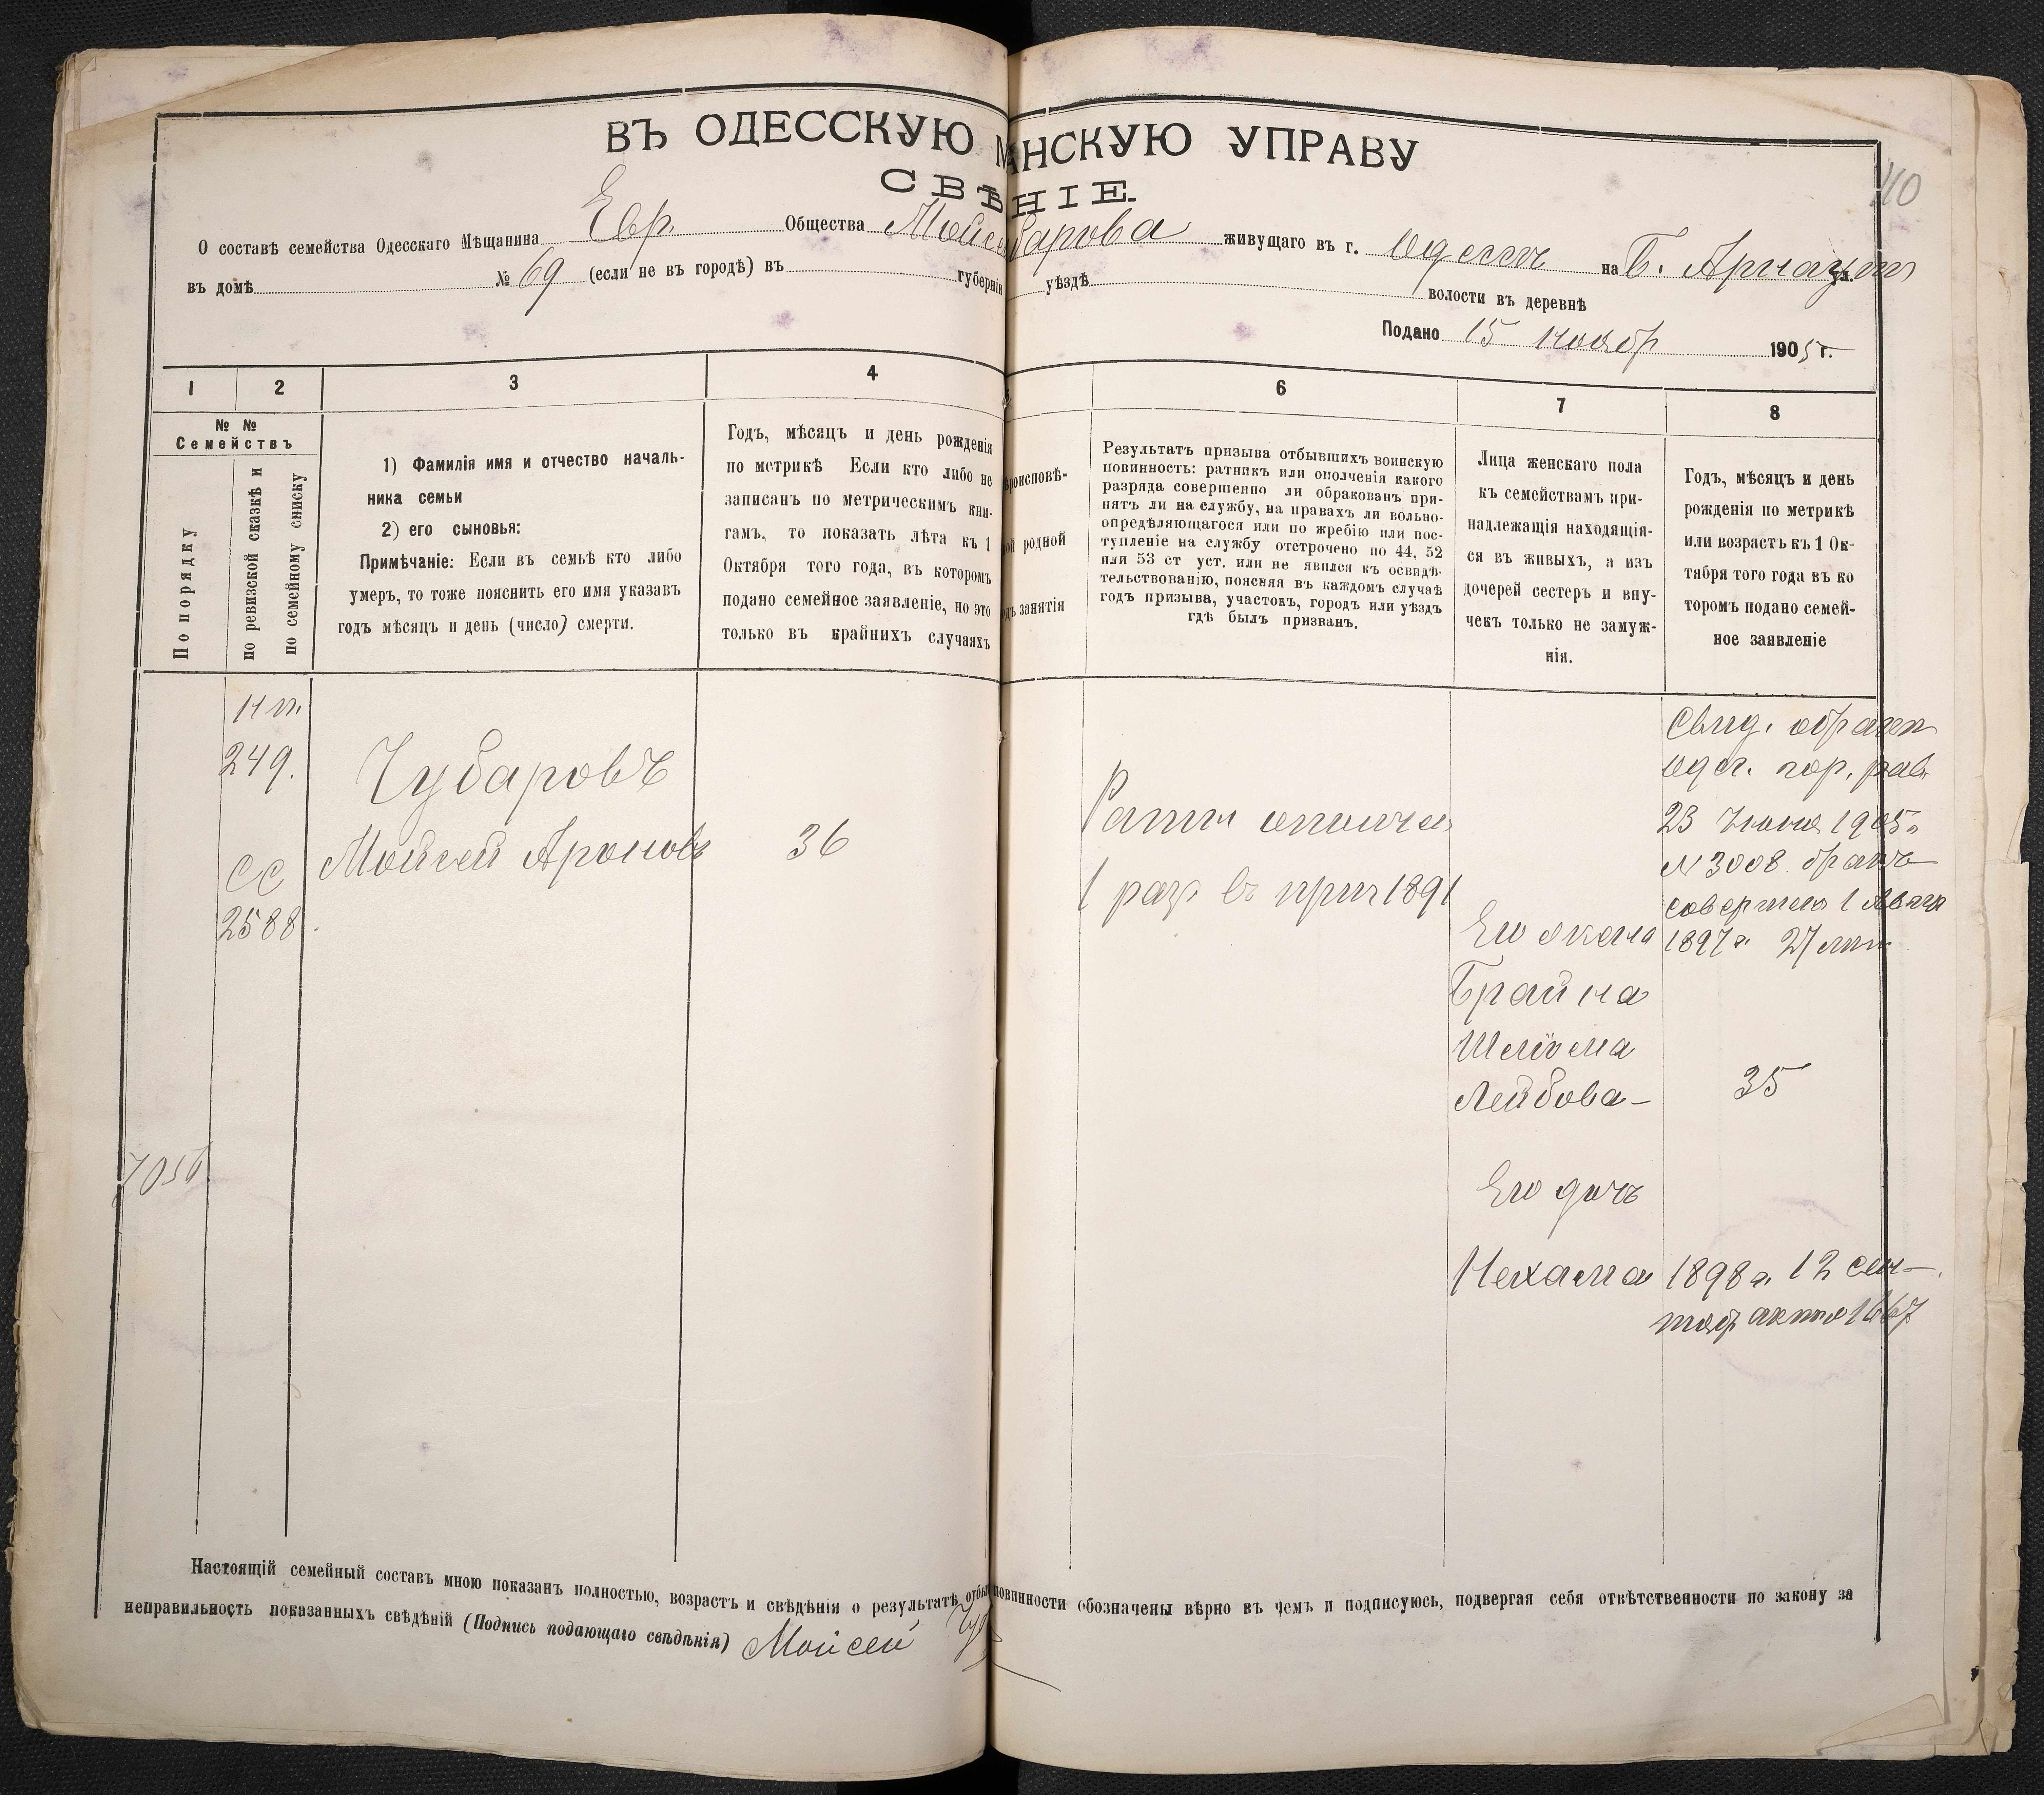 ВЪ ОДЕССКУЮ М АНСКУЮ УПРАВУ
СВѢ НІЕ.
40
О составѣ семейства Одесскаго Мѣщанина Евр Общества Мойсе барова живущаго въ г. Одессѣ на Б. Арнаут ул.
въ домѣ № 69 (если не въ городѣ) въ губерніи уѣздѣ волости въ деревнѣ
Подано 15 ноябр 1905 г.
1 2 3 4 6 7 8
№ №
Семействъ
По порядку
по ревизской сказкѣ и
по семейному списку
1) Фамилія имя и отчество началь-
ника семьи
2) его сыновья:
Примѣчаніе: Если въ семьѣ кто либо
умеръ, то тоже пояснить его имя указавъ
годъ мѣсяцъ и день (число) смерти.
Годъ, мѣсяцъ и день рожденія
по метрикѣ Если кто либо не
записанъ по метрическимъ кни-
гамъ, то показать лѣта къ 1
Октября того года, въ которомъ
подано семейное заявленіе, но это
только въ крайнихъ случаяхъ
роисповѣ-
ой родной
дъ занятія
Результатъ призыва отбывшихъ воинскую
повинность: ратникъ или ополченія какого
разряда совершенно ли обракованъ при-
нятъ ли на службу, на правахъ ли вольно-
опредѣляющагося или по жребію или пос-
тупленіе на службу отстрочено по 44, 52
или 53 ст уст. или не явился къ освидѣ-
тельствованію, поясняя въ каждомъ случаѣ
годъ призыва, участокъ, городъ или уѣздъ
гдѣ былъ призванъ.
Лица женскаго пола
къ семействамъ при-
надлежащія находящія-
ся въ живыхъ, а изъ
дочерей сестеръ и вну-
чекъ только не замуж-
нія.
Годъ, мѣсяцъ и день
рожденія по метрикѣ
или возрастъ къ 1 Ок-
тября того года въ ко
торомъ подано семей-
ное заявленіе
249.
Чубаровъ
сс
2588
Мойсей Ароновъ
36
Ратн ополчен
1 раз въ приз 1891
Свид.
Одес. гор. рав
23 Іюня 1905г
N 3008 бракъ
совершен 1 Авгус
1897 г. 27
Его жена
Брайна
Шеліома
Лейбова-
35
Его дочь
Нехама
1898 г. 12 сен-
тяб актъ 1667
Настоящій семейный составъ мною показанъ полностью, возрастъ и свѣдѣнія о результатѣ отбы повинности обозначены вѣрно въ чемъ и подписуюсь, подвергая себя отвѣтственности по закону за
неправильность показанныхъ свѣдѣній (Подпись подающаго свѣдѣнія) Мойсей Чуб